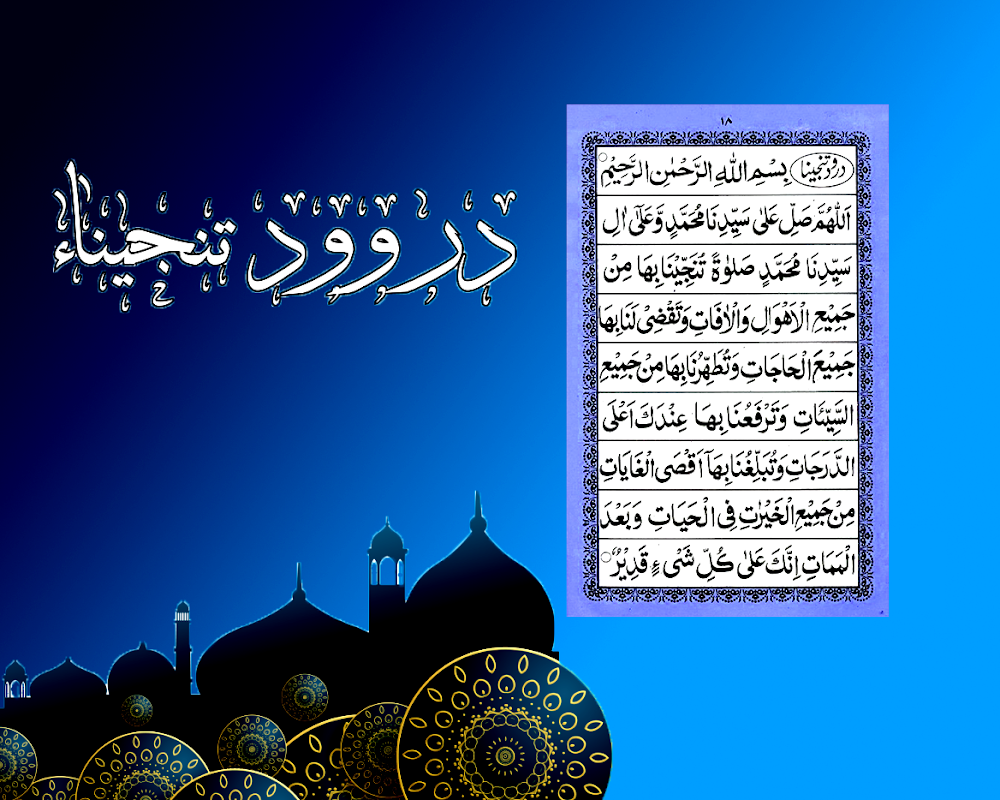 دروود تنجيناء
١٨
درود تنجینا بِسْمِ اللهِ الرَّحْمٰنِ الرَّحِيْمِ
اَللّٰهُمَّ صَلِّ عَلٰى سَيِّدِنَا مُحَمَّدٍ وَّعَلٰٓى اٰلِ
سَيِّدِنَا مُحَمَّدٍ صَلٰوةً تُنَجِّيْنَا بِهَا مِنْ
جَمِيْعِ الْاَهْوَالِ وَالْاٰفَاتِ وَتَقْضِىْ لَنَا بِهَا
جَمِيْعَ الْحَاجَاتِ وَتُطَهِّرُنَا بِهَا مِنْ جَمِيْعِ
السَّيِّئَاتِ وَتَرْفَعُنَا بِهَا عِنْدَكَ اَعْلَى
الدَّرَجَاتِ وَتُبَلِّغُنَا بِهَآ اَقْصَى الْغَايَاتِ
مِنْ جَمِيْعِ الْخَيْرٰتِ فِى الْحَيَاتِ وَبَعْدَ
الْمَمَاتِ اِنَّكَ عَلٰى كُلِّ شَىْءٍ قَدِيْرٌ